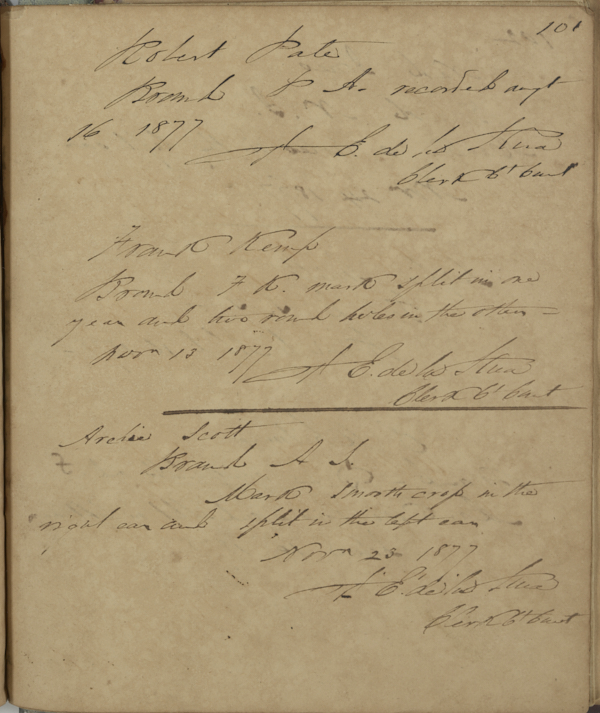 101
Robert Pate
Brand P A. recorded augt
16 1877
F. E. de la Rua
Clerk Ct Court
Frank Kemp
Brand F K. mark split in one
year and two round holes in the other -
Novr 13 1877
F. E. de la Rua
Clerk Ct Court
Archie Scott
Brand A S.
Mark smooth crop in the
right ear and split in the left ear
Novr 23 1877
F. E. de la Rua
Clerk Ct Court